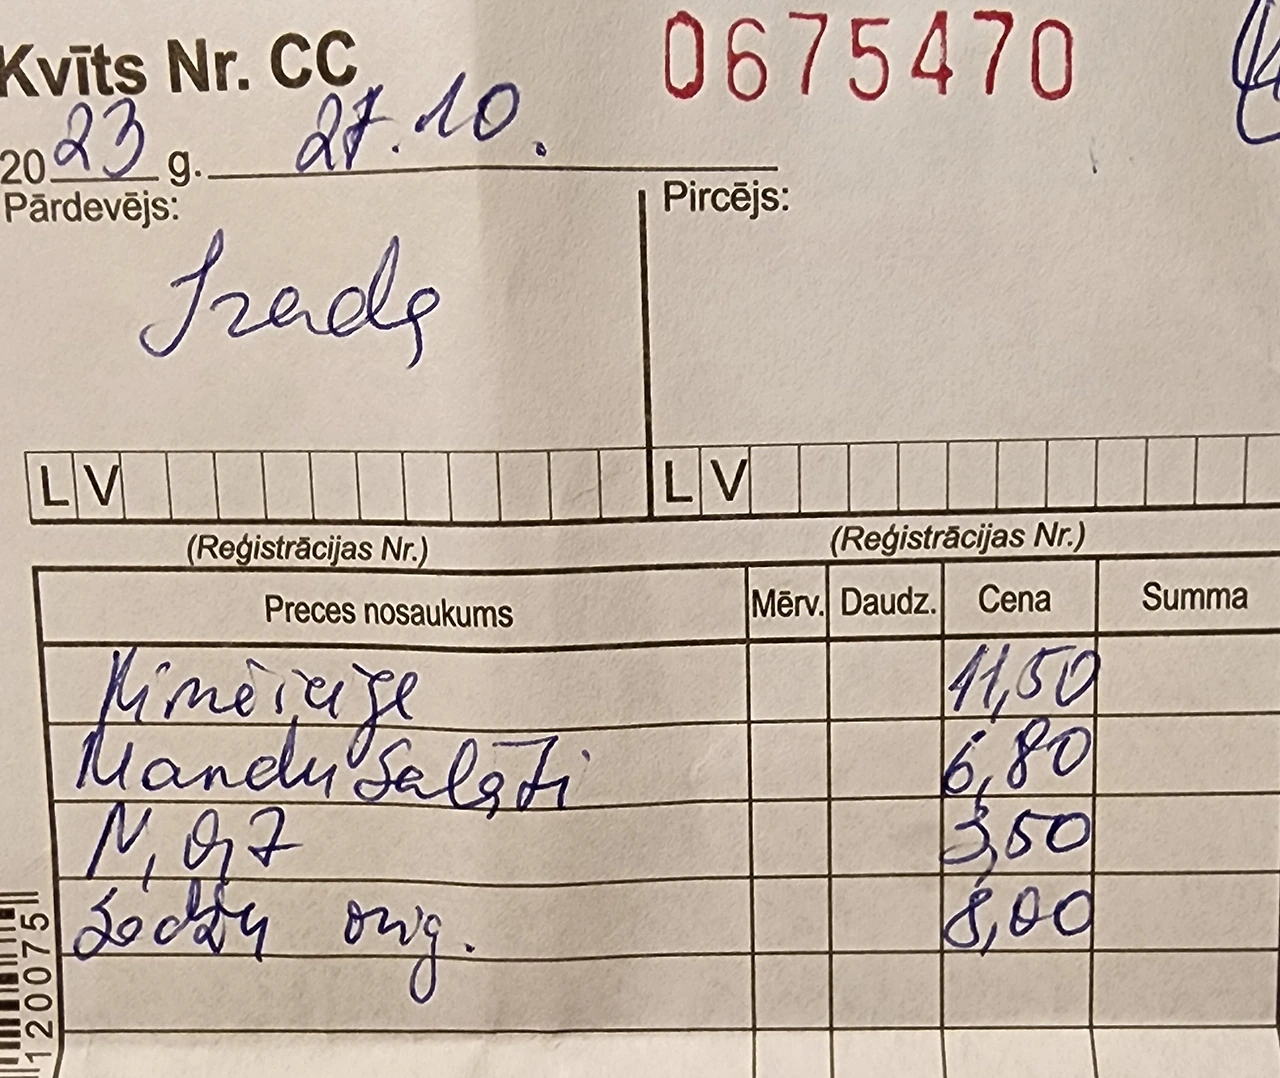 Kvīts Nr. CC 0675470
2023 g. 27.10.
Pārdevējs: Pircējs:
LV LV
(Reģistrācijas Nr.) (Reģistrācijas Nr.)
Preces nosaukums Mērv. Daudz. Cena Summa
11,50
Mandu Salāti 6,80
N, 0,7 3,50
orig. 8,00
120075